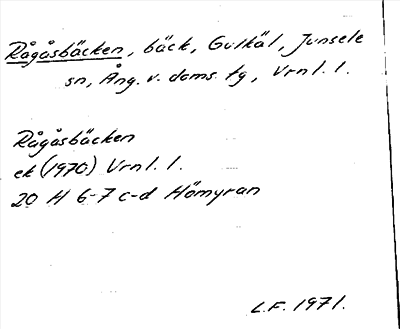 Rågåsbäcken, bäck, Gulkäl, Junsele
sn, Ång. v. doms. tg, Vrnl. l.
Rågåsbäcken
ek (1970) Vrnl. l.
20 H 6-7 c-d Hömyran
L.F. 1971.